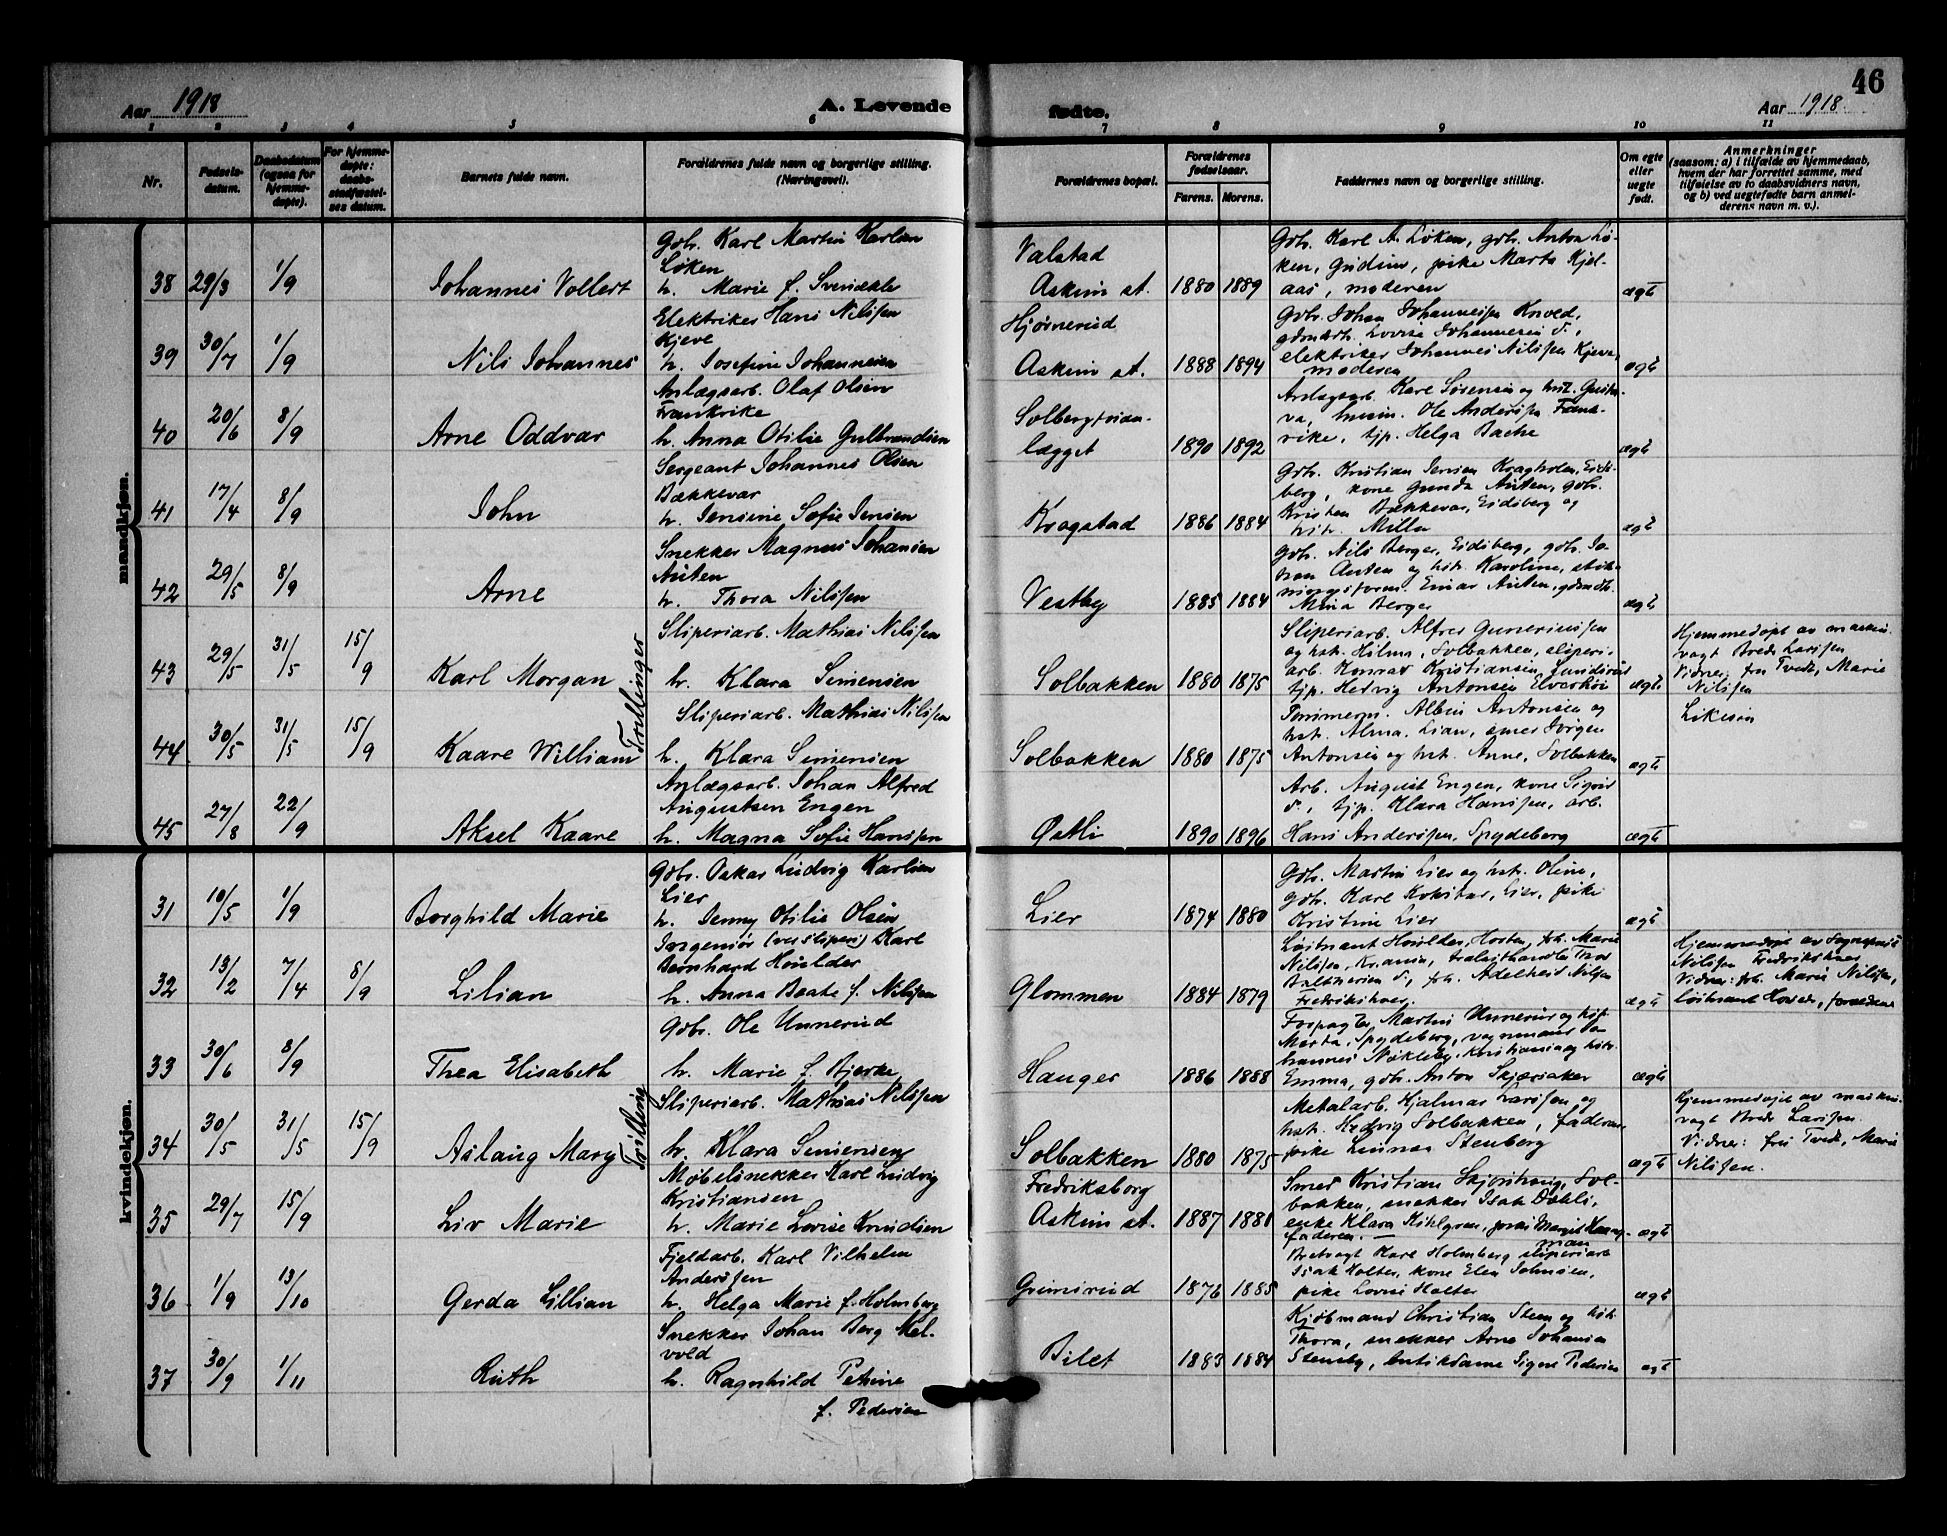 Aar 1918
A. Levende
fødte.
Aar 1918
46
1 2 3 4 5 6 7 8 9 10 11
Nr.
Fødsels-
datum.
Daabsdatum
(ogsaa for
hjemme-
døpte).
For hjemme-
døpte:
daabs-
stadfæstel-
ses datum.
Barnets fulde navn.
Forældrenes fulde navn og borgerlige stilling.
(Næringsvei).
Forældrenes bopæl.
Forældrenes
fødselsaar.
Farens. Morens.
Faddernes navn og borgerlige stilling.
Om egte
eller
uegte
født.
Anmerkninger
(saasom: a) i tilfælde av hjemmedaab,
hvem der har forrettet samme, med
tilføielse av to daabsvidners navn,
og b) ved uegtefødte barn anmel-
derens navn m. v.).
mandkjøn.
38 29/3 1/9
Johannes Vollert
Gbr. Karl Martin Karlsen
Løken
h. Marie f.
Valstad
Askim st.
1880 1889
Gbr. Karl A. Løken, gbr. Anton Lø-
ken, pike Marta Kjel-
aas, moderen
ægt
39 30/7 1/9
Nils Johannes
Elektriker Hans Nilssen
Kjeve
h. Josefine Johannesen
Hjørnerud
Askim st.
1888 1894
Gbr. Johan Johannessen
Lovise Johannesen
elektriker Johannes Nilssen Kjeve,
moderen
ægt
40 20/6 8/9
Arne Oddvar
Anlægsarb. Olaf Olsen
Frankrike
h. Anna Otilie Gulbrandsen
Solbergfoss-
lægget
1890 1892
Anlægsarb. Karl Sørensen og hst. Gusta-
va, husm. Ole Anderssen Frank-
rike, tjp. Helga Bache
ægt
41 17/4 8/9
John
Sergeant Johannes Olsen
Bækkevar
h. Jensine Sofie Jensen
Kragstad
1886 1884
Gbr. Kristian Jensen Kragholen, Eids-
berg, kone Gunda Auten, gbr.
Kristen Bækkevar, Eidsberg og
hst. Milla
ægt
42 29/5 8/9
Arne
Snekker Magnus Johansen
Auten
h. Thora Nilssen
Vestby
1885 1884
Gbr. Nils Berger, Eidsberg, gbr. Jo-
han Auten og hst. Karoline,
Einar Auten,
Mina Berger
ægt
43 29/5 31/5 15/9
Karl Morgan
Trillinger
Sliperiarb. Mathias Nilssen
h. Klara Simensen
Solbakken
1880 1875
Sliperiarb. Alfred Gunerinssen
og hst. Hilma, Solbakken, sliperi-
arb. Konrad Kristiansen,
tjp. Hedvig Antonsen
ægt
Hjemmedøpt av maskin-
vagt Bred Larssen
Vidner, fru Tvedt, Marie
Nilssen
44 30/5 31/5 15/9
Kaare William
Sliperiarb. Mathias Nilssen
h. Klara Simensen
Solbakken
1880 1875
Tømmerm. Albin Antonsen og
hst. Alma, Lian, smed Jørgen
Antonsen og hst. Anne, Solbakken
ægt
Likesin
45 27/8 22/9
Aksel Kaare
Anlægsarb. Johan Alfred
Augustsen Engen
h. Magna Sofie Hanssen
Østli
1890 1896
Arb. August Engen, kone Sigrid
d., tjp. Klara Hanssen, arb.
Hans Anderssen, Spydeberg
ægt
kvindekjøn.
31 10/5 1/9
Borghild Marie
Gbr. Oskar Ludvig Karlsen
Lier
h. Jenny Otilie Olsen
Lier
1874 1880
Gbr. Martin Lier og hst. Oline,
gbr. Karl Lier, pike
Kristine Lier
ægt
32 13/2 7/4 8/9
Lilian
Ingeniør (ved sliperi) Karl
Bernhard Houlder
h. Anna Beate f. Nilssen
Glommen
1884 1879
Løitnant Houlder, Horten, frk. Marie
Nilssen, Krania,
frk. Adelheid Nilssen
ægt
Hjemmedøpt av Sogneprest
Nilssen
Vidner: frk. Marie Nilssen,
løitnant
33 30/6 8/9
Thea Elisabeth
Gbr. Ole Unnerud
h. Marie f. Bjerke
Hauger
1886 1888
Forpagter Martin Unnerud og hst.
Marta, Spydeberg,
Kristiania og hst.
Emma, gbr. Anton Skjæraker
ægt
34 30/5 31/5 15/9
Aslaug Mary
Trilling
Sliperiarb. Mathias Nilssen
h. Klara Simensen
Solbakken
1880 1875
Metalarb. Hjalmar Larssen og
hst. Hedvig Solbakken, faderen,
pike Linnea Stenberg
ægt
Hjemmedøpt av maskin-
vagt Bred Larssen.
Vidner: fru Tvedt, Marie
Nilssen.
35 29/7 15/9
Liv Marie
Møbelsnekker Karl Ludvig
Kristiansen
h. Marie Lovise Knudsen
Fredriksborg
Askim st.
1887 1881
Smed Kristian Skjønhaug, Sol-
bakken, snekker Isak Dahli,
enke Klara
faderen. —
ægt
36 1/9 13/10
Gerda Lillian
Fjeldarb. Karl Vilhelm
Anderssen
h. Helga Marie f. Holmberg
Grimsrud
1876 1885
Karl Holmberg, sliperiarb
Isak Holter, kone Elen Johnsen,
pike Lovise Holter
ægt
37 30/9 1/11
Ruth
Snekker Johan Berg Mel-
vold
h. Ragnhild Petrine
f. Pedersen
Bilet
1883 1884
Kjøbmand Christian Steen og hst.
Thora, snekker Arne Johansen
Stensby, butikdame Signe Pedersen
ægt